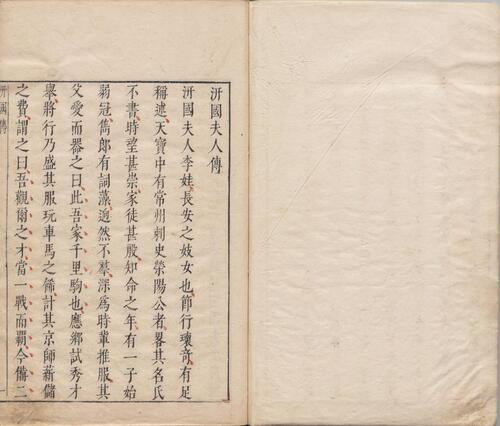 汧國夫人傳
汧國夫人李娃長安之妓女也節行瓌竒有足
稱述天寶中有常州刺史滎陽公者畧其名氏
不書時望甚崇家徒甚殷知命之年有一子始
弱冠雋郎有詞藻逈然不羣深為時輩推服其
父愛而器之曰此吾家千里駒也應鄉試秀才
舉將行乃盛其服玩車馬之餙計其京師薪儲
之費謂之曰吾觀爾之才當一戰而覇今備二
汧國傳
一